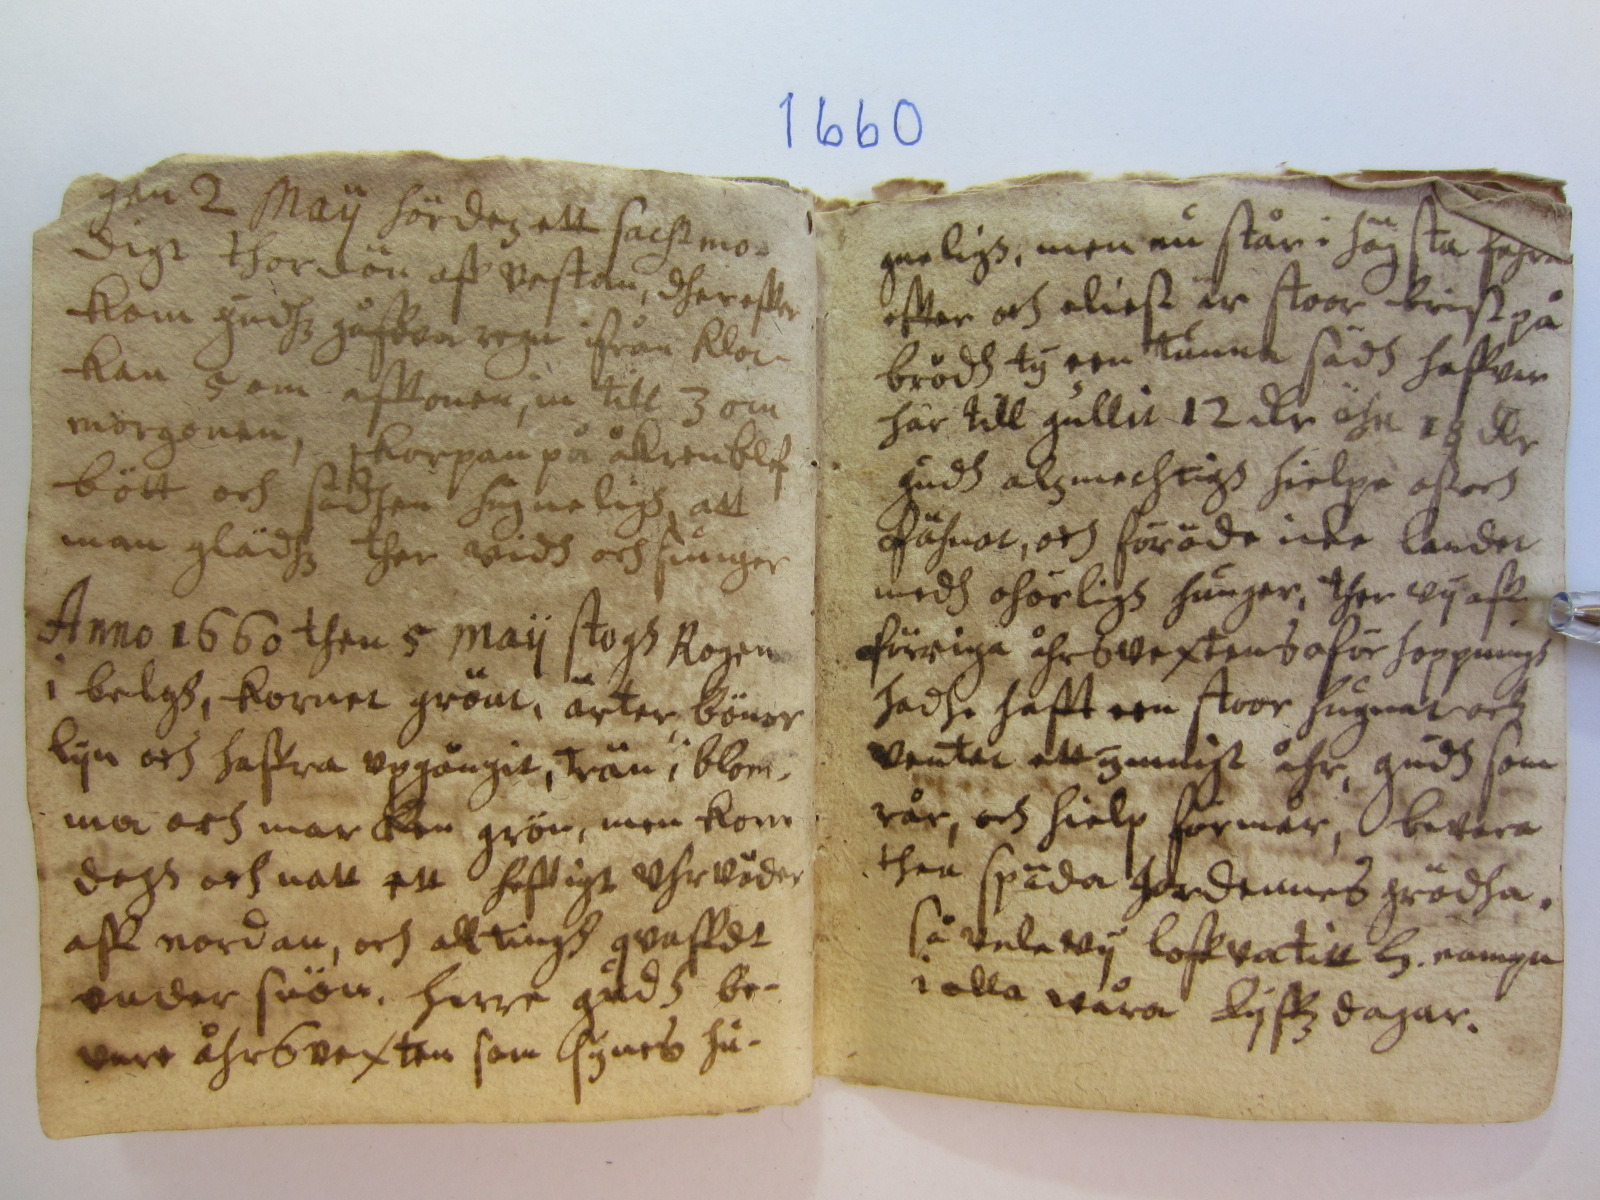 1660
gen 2 Maÿ hördes ett sachtmo-
digt thordön aff vestan, dherefter
kom gudz gåffva regn ifrån kloc-
kan 5 om afftonen, in till 3 om
morgonen, skorpan på åkren bleff
bött och sädhen hugneligh, att
man glädhz ther vidh och siunger
Anno 1660 then 5 Maÿ stogh Rogen
i belgh, kornet grönt, ärter, bönor
lijn och haffra vpgångit, trän i blom-
ma och marken grön, men kom
dagh och natt ett hefftigt vhrväder
aff nordan, och alltingh qvafft
vnder snön. herre gudh be-
vare åhrsvexten som synes hu-
gneligh, men nu står i högsta fahra
effter och eliest är stoor brist på
brödh ty een tunna sädh haffver
här till gullit 12 dlr åhn 18 dlr
gudh alzmechtigh hielpe oss och
fähnat, och föröde icke landet
medh ohörligh hunger, ther vij aff
förriga åhrsvextens oförhoppningh
hadhe hafft een stoor hugnat och
ventat ett ymnigt åhr, gudh som
rår, och hielp förmår, bevara
then späda Jordennes grödha.
så vele vij loffva titt h. nampn
i alla våra lijffz dagar.